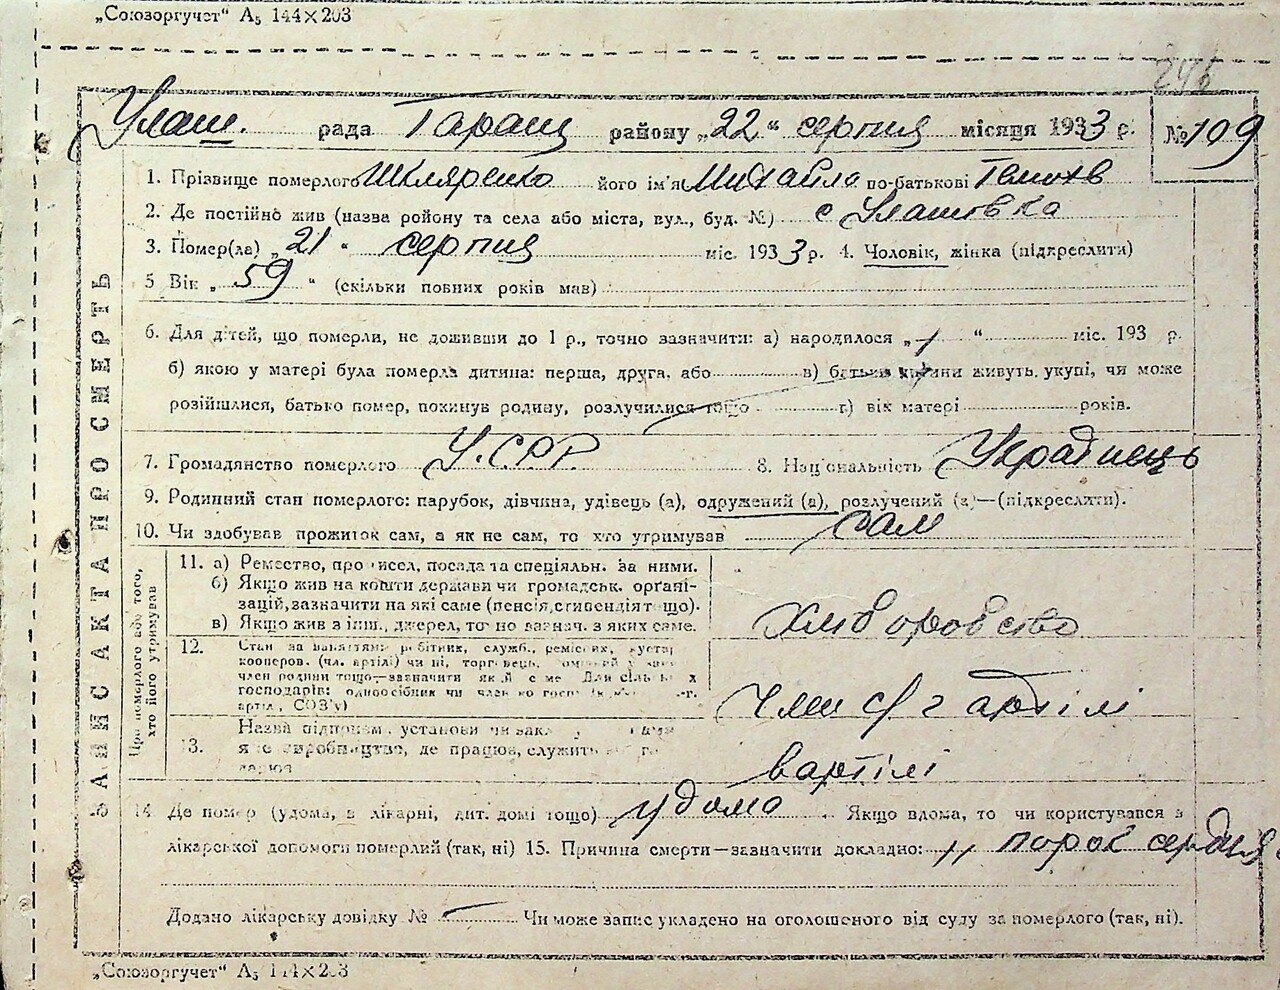 „Союзоргучет“ А₅ 144×203
246
Улаш. рада Таращ району „22“ серпня місяця 1933 р. № 109
1. Прізвище померлого Шкляренко його ім'я Михайло по-батькові Тимохв
2. Де постійно жив (назва ройону та села або міста, вул., буд. №) с Улашовка
3. Помер(ла) „21“ серпня міс. 1933 р. 4. Чоловік, жінка (підкреслити)
5 Вік „59“ (скільки повних років мав)
ВАПИС АКТА ПРО СМЕРТЬ
6. Для дітей, що померли, не доживши до 1 р., точно зазначити: а) народилося „ “ міс. 193 р.
б) якою у матері була померла дитина: перша, друга, або в) батьки дитини живуть укупі, чи може
розійшлися, батько помер, покинув родину, розлучилися тощо г) вік матері років.
7. Громадянство померлого У.С.Р.Р. 8. Національність Українець
9. Родинний стан померлого: парубок, дівчина, удівець (а), одружений (а), розлучений (а)—(підкреслити).
10. Чи здобував прожиток сам, а як не сам, то хто утримував сам
Про померлого або того,
хто його утримував
11. а) Ремество, професія, посада та спеціяльн. за ними.
б) Якщо жив на кошти держави чи громадськ. орґані-
зацій, зазначити на які саме (пенсія, стипендія тощо).
в) Якщо жив з інш. джерел, точно зазнач. з яких саме.
Хліборобство
12. Стан за заняттями робітник, служб., реміснк, кустар
кооперов. (чл. артілі) чи ні, торговець,
член родини тощо—зазначити який саме Для сільських
господарів: одноосібник чи член
артіл, СОЗ'у)
Член с/г артілі
13. Назва підприєм. установи чи
виробництво, де працює, служить
вартілі
14 Де помер (удома, в лікарні, дит. домі тощо) удома. Якщо вдома, то чи користувався з
лікарської допомоги померлий (так, ні) 15. Причина смерти—зазначити докладно: порок сердця
Додано лікарську довідку № — Чи може запис укладено на оголошеного від суду за померлого (так, ні).
„Союзоргучет“ А₅ 144×203